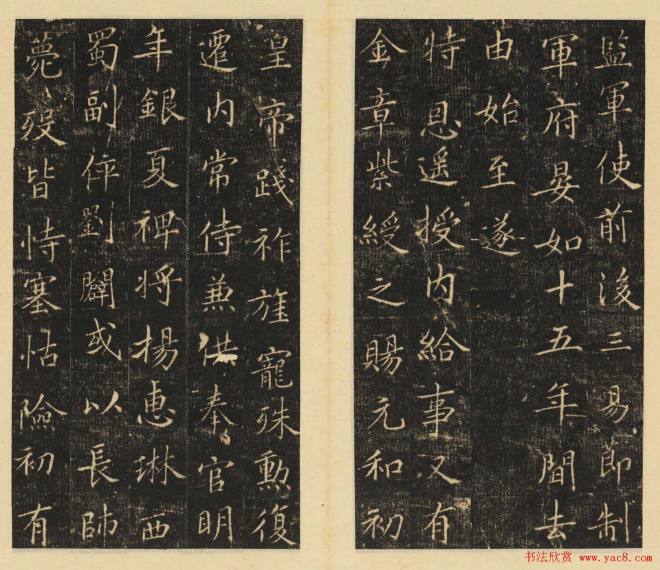 監軍使前後三易節制
軍府晏如十五年間去
由始至遂
特恩遥授内給事又有
金章紫綬之賜元和初
皇帝踐祚旌寵殊勲復
遷内常侍兼供奉官明
年銀夏裨将楊惠琳西
蜀副倅劉闢或以長帥
薨歿皆恃塞怙險初有
书法欣赏 www.yac8.com